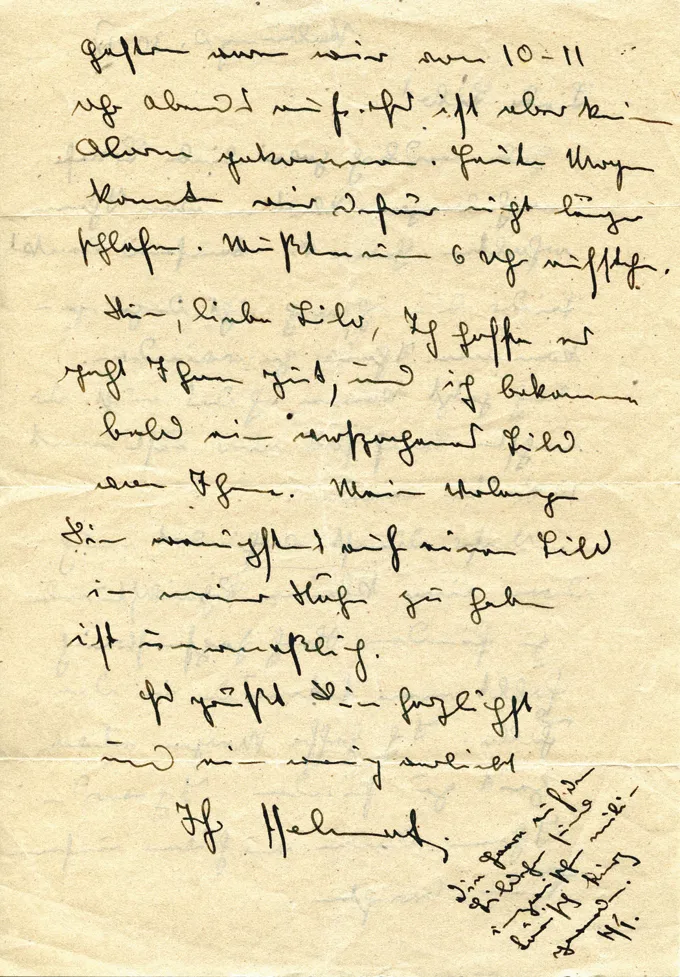 Gestern waren wir von 10-11
Uhr Abends auf. Es ist aber kein
Alarm gekommen. Heute Morgen
konnten wir dafür nicht länger
schlafen. Mußten um 6 Uhr aufstehn.
Nun, liebe Lilo, Ich hoffe es
geht Ihnen gut, und ich bekomme
bald ein Bild
von Ihnen. Mein Verlangen
Sie wenigstens auf einem Bild
in meiner Nähe zu haben
ist unermeßlich.
Es grüßt Sie herzlichst
und ein wenig verliebt
Ihr Helmut.